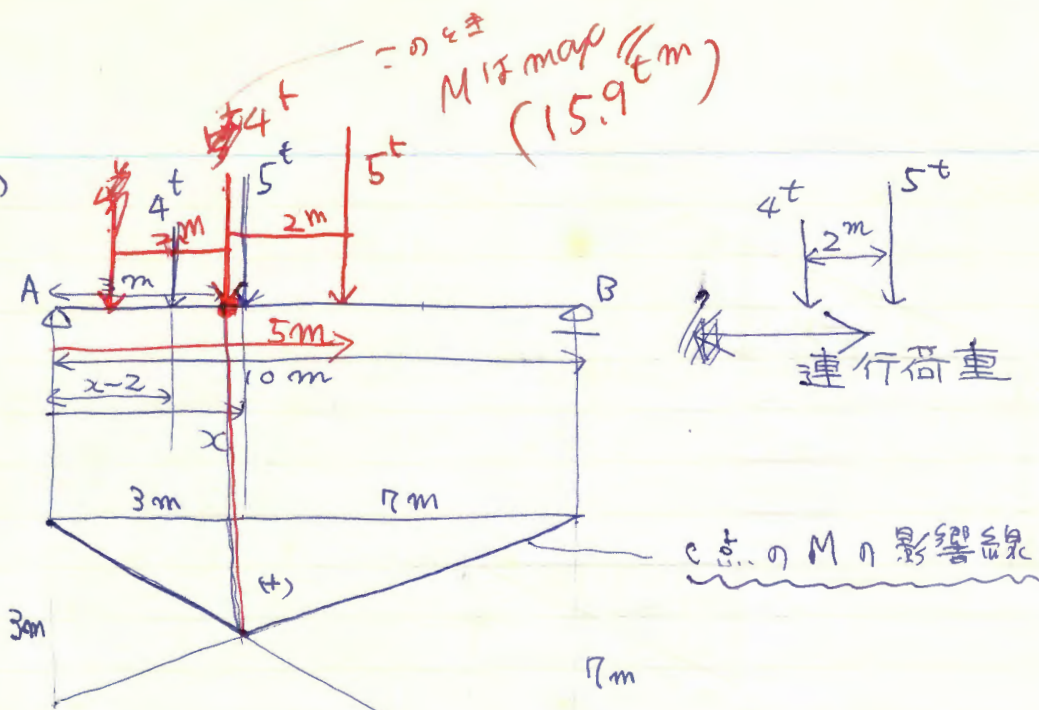 このとき
Mはmax
(15.9tm)
4t
5t
5t
4t
2m
m
A
B
5m
10m
x-2
x
3m
7m
(+)
3m
7m
4t
5t
2m
連行荷重
c点のMの影響線